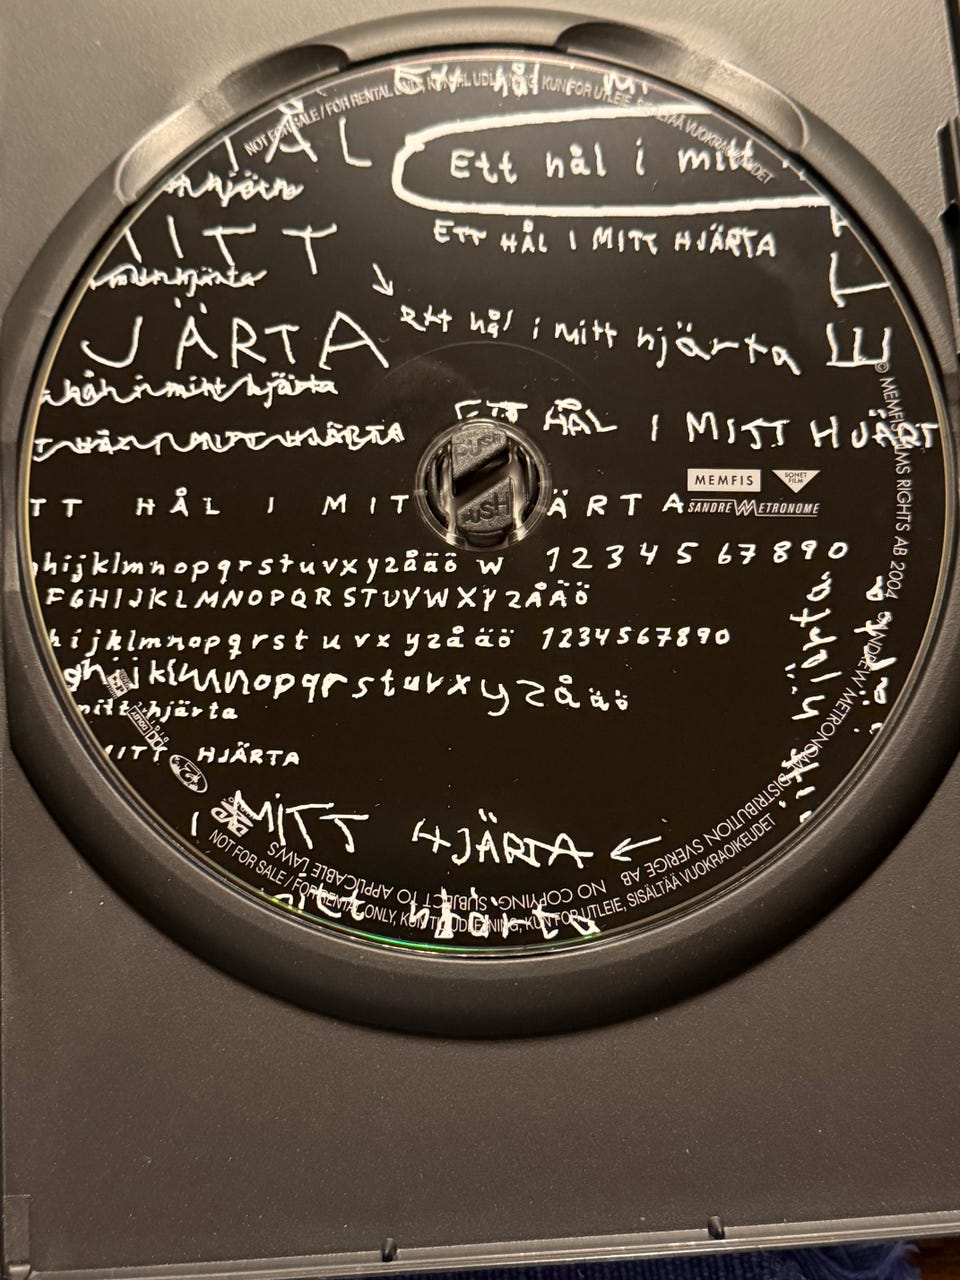 Ett hål
NOT FOR SALE / FOR RENTAL ONLY, KUN TIL UDLEJNING, KUN FOR UTLEIE, SISÄLTÄÄ VUOKRAOIKEUDET
ÅL
Ett hål i mitt
mitt hjärta
ITT
ETT HÅL I MITT HJÄRTA
mitt hjärta
JÄRTA
Ett hål i mitt hjärta
hål i mitt hjärta
ETT HÅL I MITT HJÄRT
T HÅL I MITT HJÄRTA
MEMFIS
SONET FILM
SANDREW METRONOME
TT HÅL I MIT ÄRTA
hijklmnopqrstuvxyzåäö w 1234567890
FGHIJKLMNOPQRSTUVWXYZÅÄÖ
hijklmnopqrstuvxyzåäö 1234567890
ghijklmnopqrstuvxyzåäö
mitt hjärta
MITT HJÄRTA
hjärta
© MEMFIS FILMS RIGHTS AB 2004 © SANDREW METRONOME DISTRIBUTION SVERIGE AB
NO COPYING. SUBJECT TO APPLICABLE LAWS
DVD
MITT HJÄRTA
mitt hjärta
NOT FOR SALE / FOR RENTAL ONLY, KUN TIL UDLEJNING, KUN FOR UTLEIE, SISÄLTÄÄ VUOKRAOIKEUDET
PUSH
PUSH